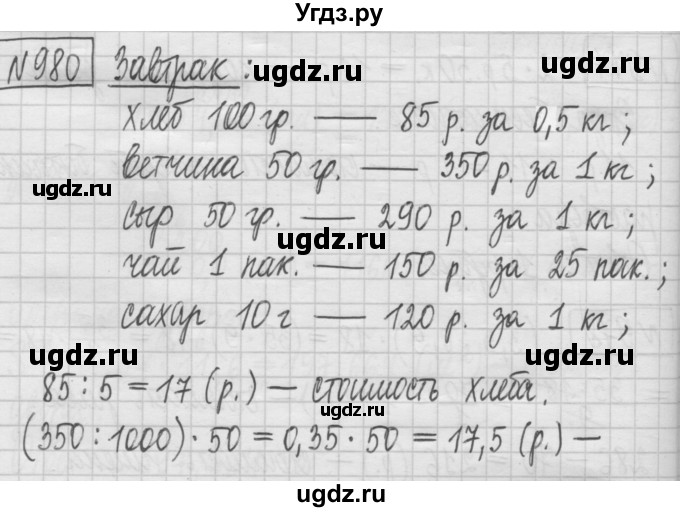 Угдз.ру
№980 Завтрак :
ugdz.ru
ugdz.ru
хлеб 100 гр. — 85 р. за 0,5 кг ;
ugdz.ru
ветчина 50 гр. — 350 р. за 1 кг ;
ugdz.ru
сыр 50 гр. — 290 р. за 1 кг ;
ugdz.ru
чай 1 пак. — 150 р. за 25 пак. ;
сахар 10 г — 120 р. за 1 кг ;
ugdz.ru
ugdz.ru
85 : 5 = 17 (р.) — стоимость хлеба.
ugdz.ru
(350 : 1000) · 50 = 0,35 · 50 = 17,5 (р.) —
ugdz.ru